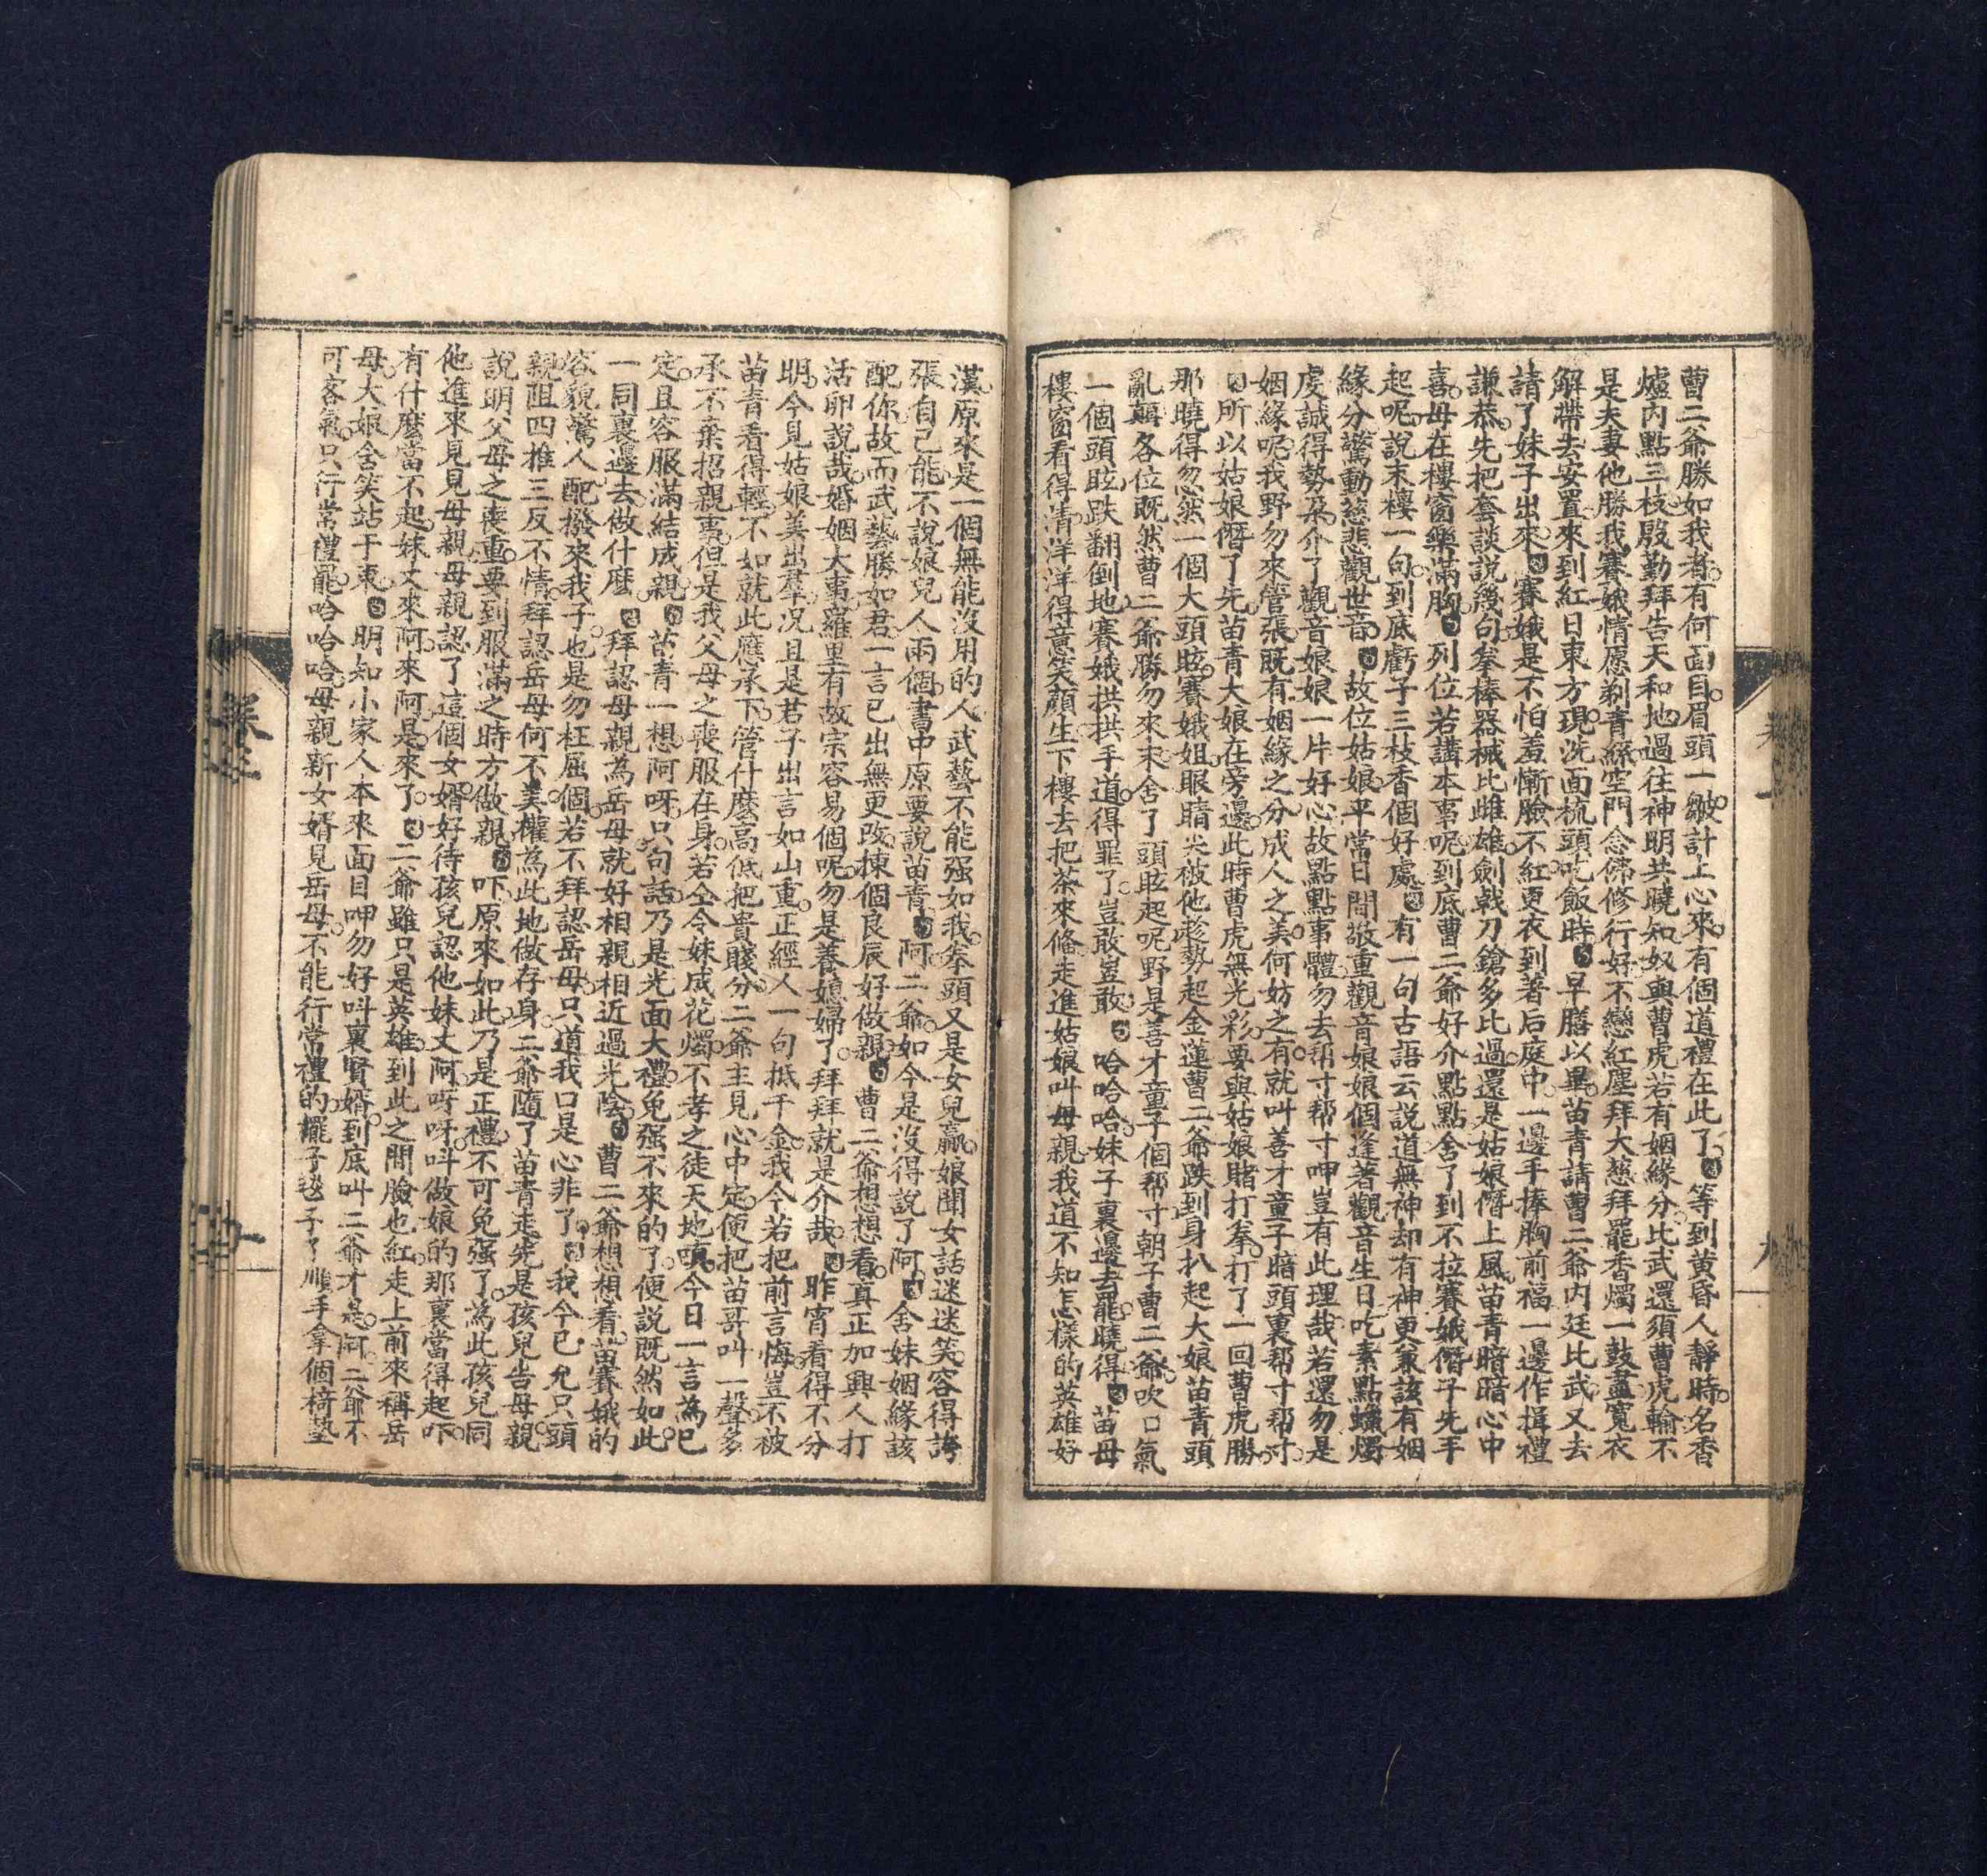 曹二爺勝如我者有何面目眉頭一皺計上心來有個道禮在此了等到黄昏人靜時名香
爐內點三枝殷勤拜告天和地過往神明共曉知奴與曹虎若有姻緣分比武還須曹虎輸不
是夫妻他勝我賽娥情愿剃青絲空門念佛修行好不戀紅塵拜大慈拜罷香燭一鼓盡寬衣
解帶去安置來到紅日東方現洗面梳頭吃飯時早膳以畢苗青請曹二爺內廷比武又去
請了妹子出來賽娥是不怕羞慚臉不紅更衣到著后庭中一邊手捧胸前福一邊作揖禮
謙恭先把套談説幾句拳棒器械比雌雄劍戟刀鎗多比過還是姑娘僭上風苗青暗暗心中
喜母在樓窗樂滿胸列位若講本事呢到底曹二爺好介點點舍了到不拉賽娥僭子先手
起呢説末樓一句到底虧子三枝香個好處有一句古語云説道無神却有神更兼該有姻
緣分驚動慈悲觀世音故位姑娘平常日間敬重觀音娘娘個逢著觀音生日吃素點蠟燭
虔誠得勢朶介了觀音娘娘一片好心故點點事體勿去帮寸帮寸呷豈有此理哉若還勿是
姻緣呢我野勿來管張既有姻緣之分成人之美何妨之有就叫善才童子暗頭裏帮寸帮寸
所以姑娘僭了先苗青大娘在旁邊此時曹虎無光彩要與姑娘賭打拳打了一回曹虎勝
那曉得忽然一個大頭眩賽娥姐眼睛尖被他趁勢起金蓮曹二爺跌到身扒起大娘苗青頭
亂顛各位既然曹二爺勝勿來末舍了頭眩起呢野是善才童子個帮寸朝子曹二爺吹口氣
一個頭眩跌翻倒地賽娥拱拱手道得罪了豈敢豈敢哈哈哈妹子裏邊去罷曉得苗母
樓窗看得清洋洋得意笑顏生下樓去把茶來條走進姑娘叫母親我道不知怎樣的英雄好
漢原來是一個無能沒用的人武藝不能强如我拳頭又是女兒贏娘聞女話迷迷笑容得誇
張自己能不說娘兒人兩個書中原要說苗青阿二爺如今是沒得説了阿舍妹姻緣該
配你故而武藝勝如君一言已出無更改揀個良辰好做親曹二爺想想看真正加興人打
活卵説哉婚姻大事羅里有故宗容易個呢勿是養媳婦了拜拜就是介哉昨宵看得不分
明今見姑娘美出羣况且是若子出言如山重正經人一句抵千金我今若把前言悔豈不被
苗青看得輕不如就此應承下管什麽高低把貴賤分二爺主見心中定便把苗哥叫一聲多
承不棄招親事但是我父母之喪服在身若仝令妹成花燭不孝之徒天地嗔今日一言為已
定且容服滿結成親苗青一想阿呀只句話乃是光面大禮免强不來的了便説既然如此
一同裏邊去做什麽拜認母親為岳母就好相親相近過光陰曹二爺想想看苗賽娥的
容貌驚人配撥來我子也是勿枉屈個若不拜認岳母只道我口是心非了我今已允只頭
親阻四推三反不情拜認岳母何不美權為此地做存身二爺隨了苗青走先是孩兒告母親
說明父母之喪重要到服滿之時方做親吓原來如此乃是正禮不可免强了為此孩兒同
他進來見見母親母親認了這個女婿好待孩兒認他妹丈阿呀呀呌做娘的那裏當得起吓
有什麽當不起妹丈來阿來阿是來了二爺雖只是英雄到此之間臉也紅走上前來稱岳
母大娘含笑站于東明知小家人本來面目呷勿好呌裏賢婿到底叫二爺才是阿二爺不
可客氣只行常禮罷哈哈哈母親新女婿見岳母不能行常禮的擺子毯子了雕手拿個椅墊